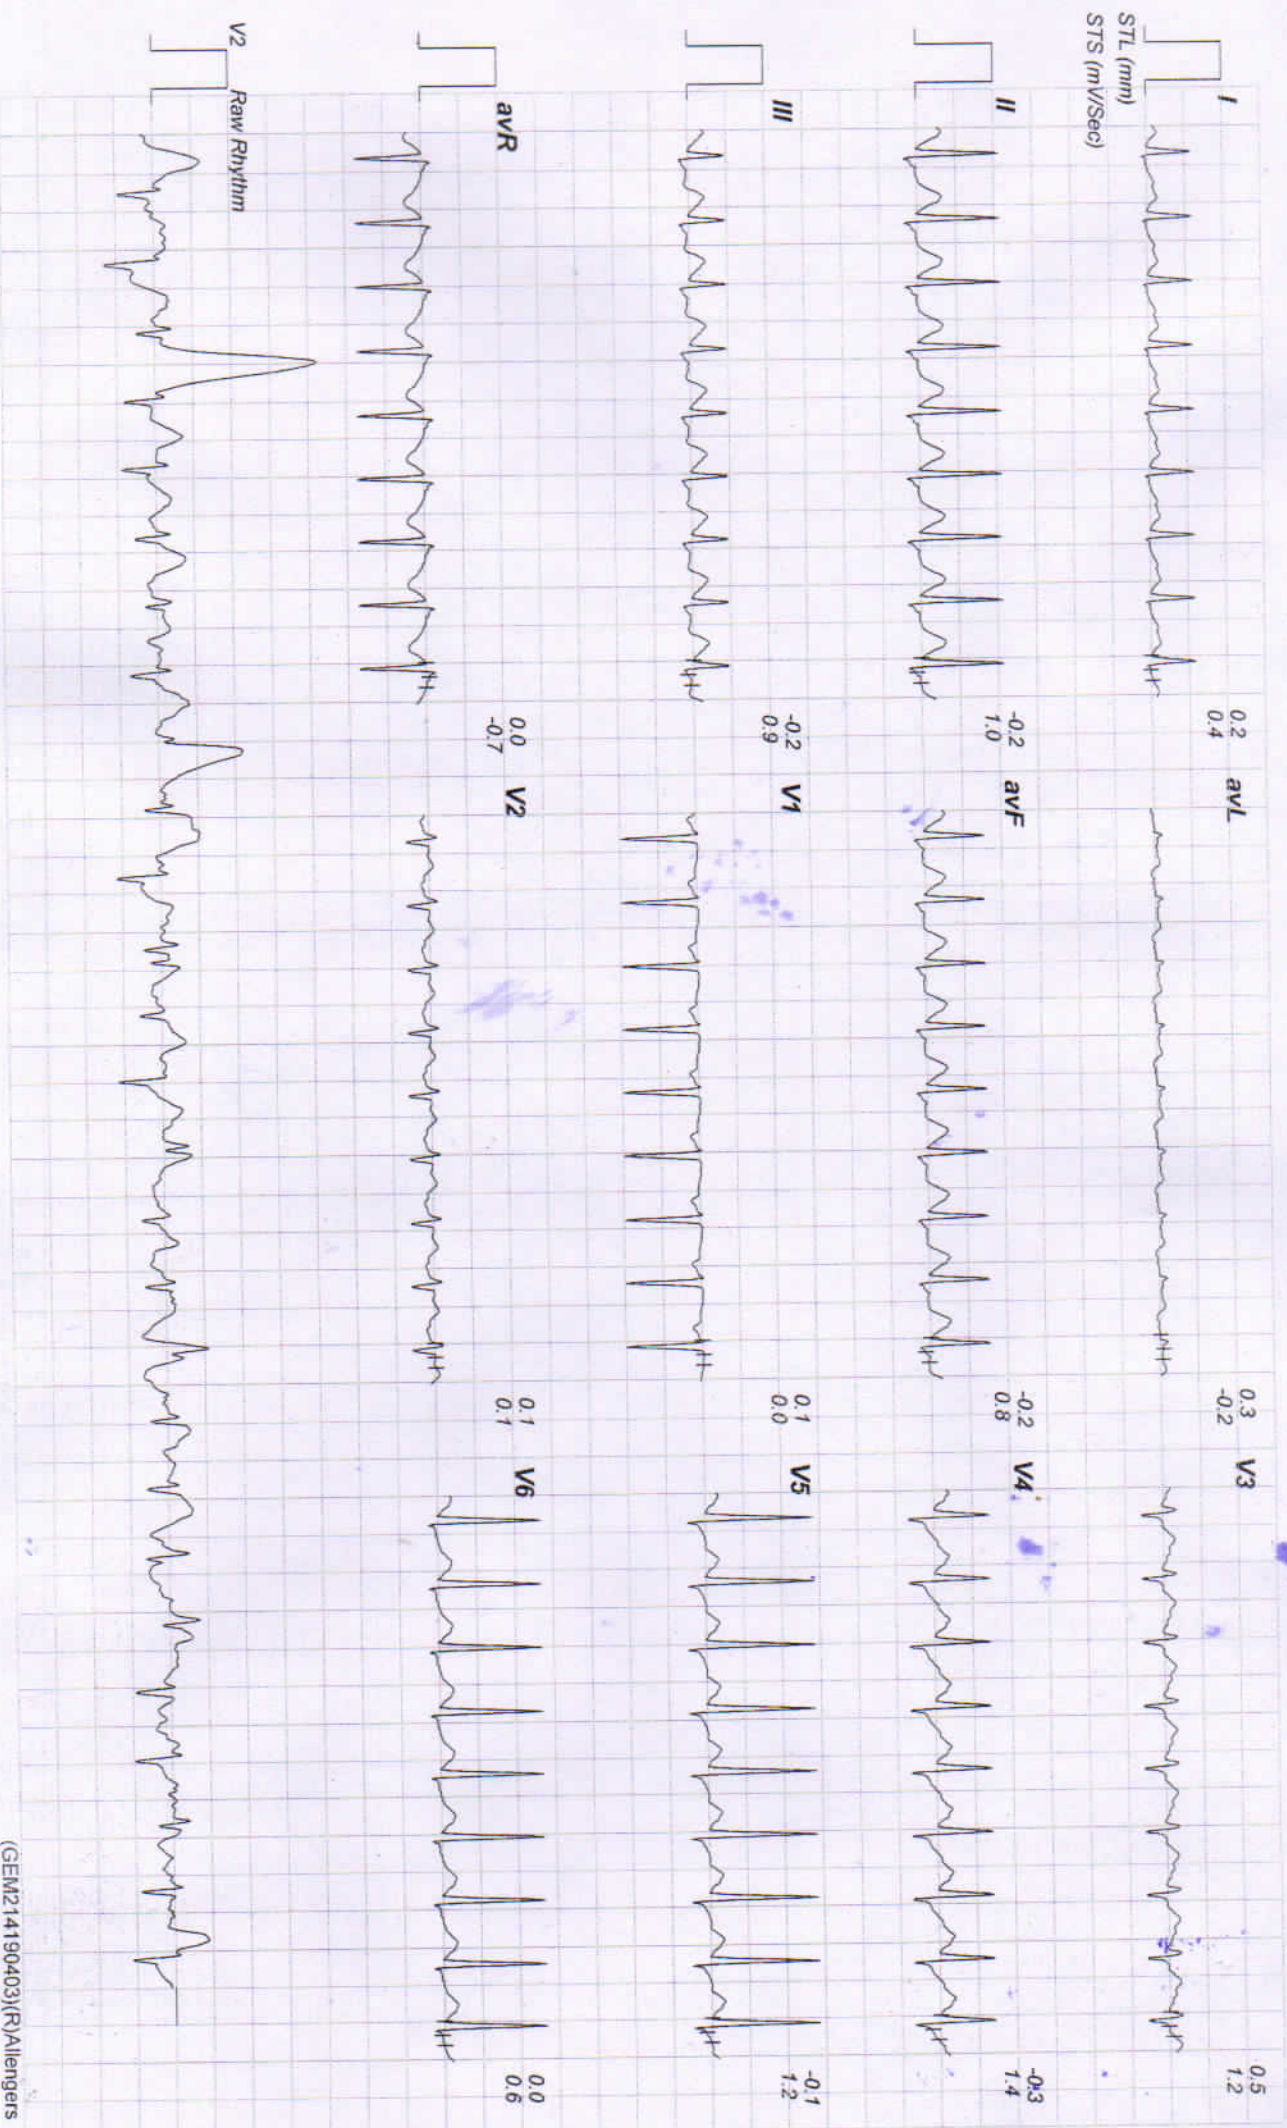 I
STL (mm)
STS (mV/Sec)
0.2
0.4
avL
0.3
-0.2
V3
0.5
1.2
II
-0.2
1.0
avF
-0.2
0.8
V4
-0.3
1.4
III
-0.2
0.9
V1
0.1
0.0
V5
-0.1
1.2
avR
0.0
-0.7
V2
0.1
0.1
V6
0.0
0.6
V2 Raw Rhythm
(GEM214190403)(R)Allengers